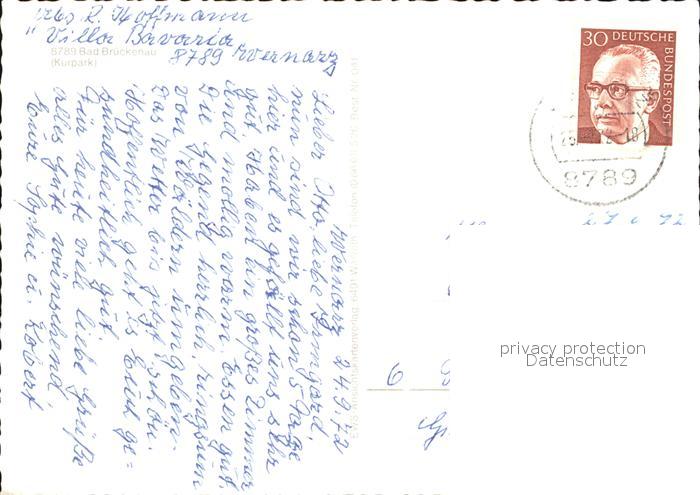 Abs. R. Hoffmann
"Villa Bavaria
8789 Bad Brückenau
(Kurpark)
8789 Wernarz
30 DEUTSCHE BUNDESPOST
8789
Wernarz 24.9.72
Lieber Otto, liebe Irmgard,
nun sind wir schon 5 Tage
hier und es gefällt uns sehr
gut. Haben ein großes Zimmer
und mollig warm. Essen gut.
Die Gegend herrlich, ringsum
von Wäldern umgeben.
Das Wetter bis jetzt schön.
Hoffentlich geht es Euch ge=
sundheitlich gut.
Für heute viele liebe Grüße
alles Gute wünschend
Eure Sophie u. Robert
6
privacy protection
Datenschutz